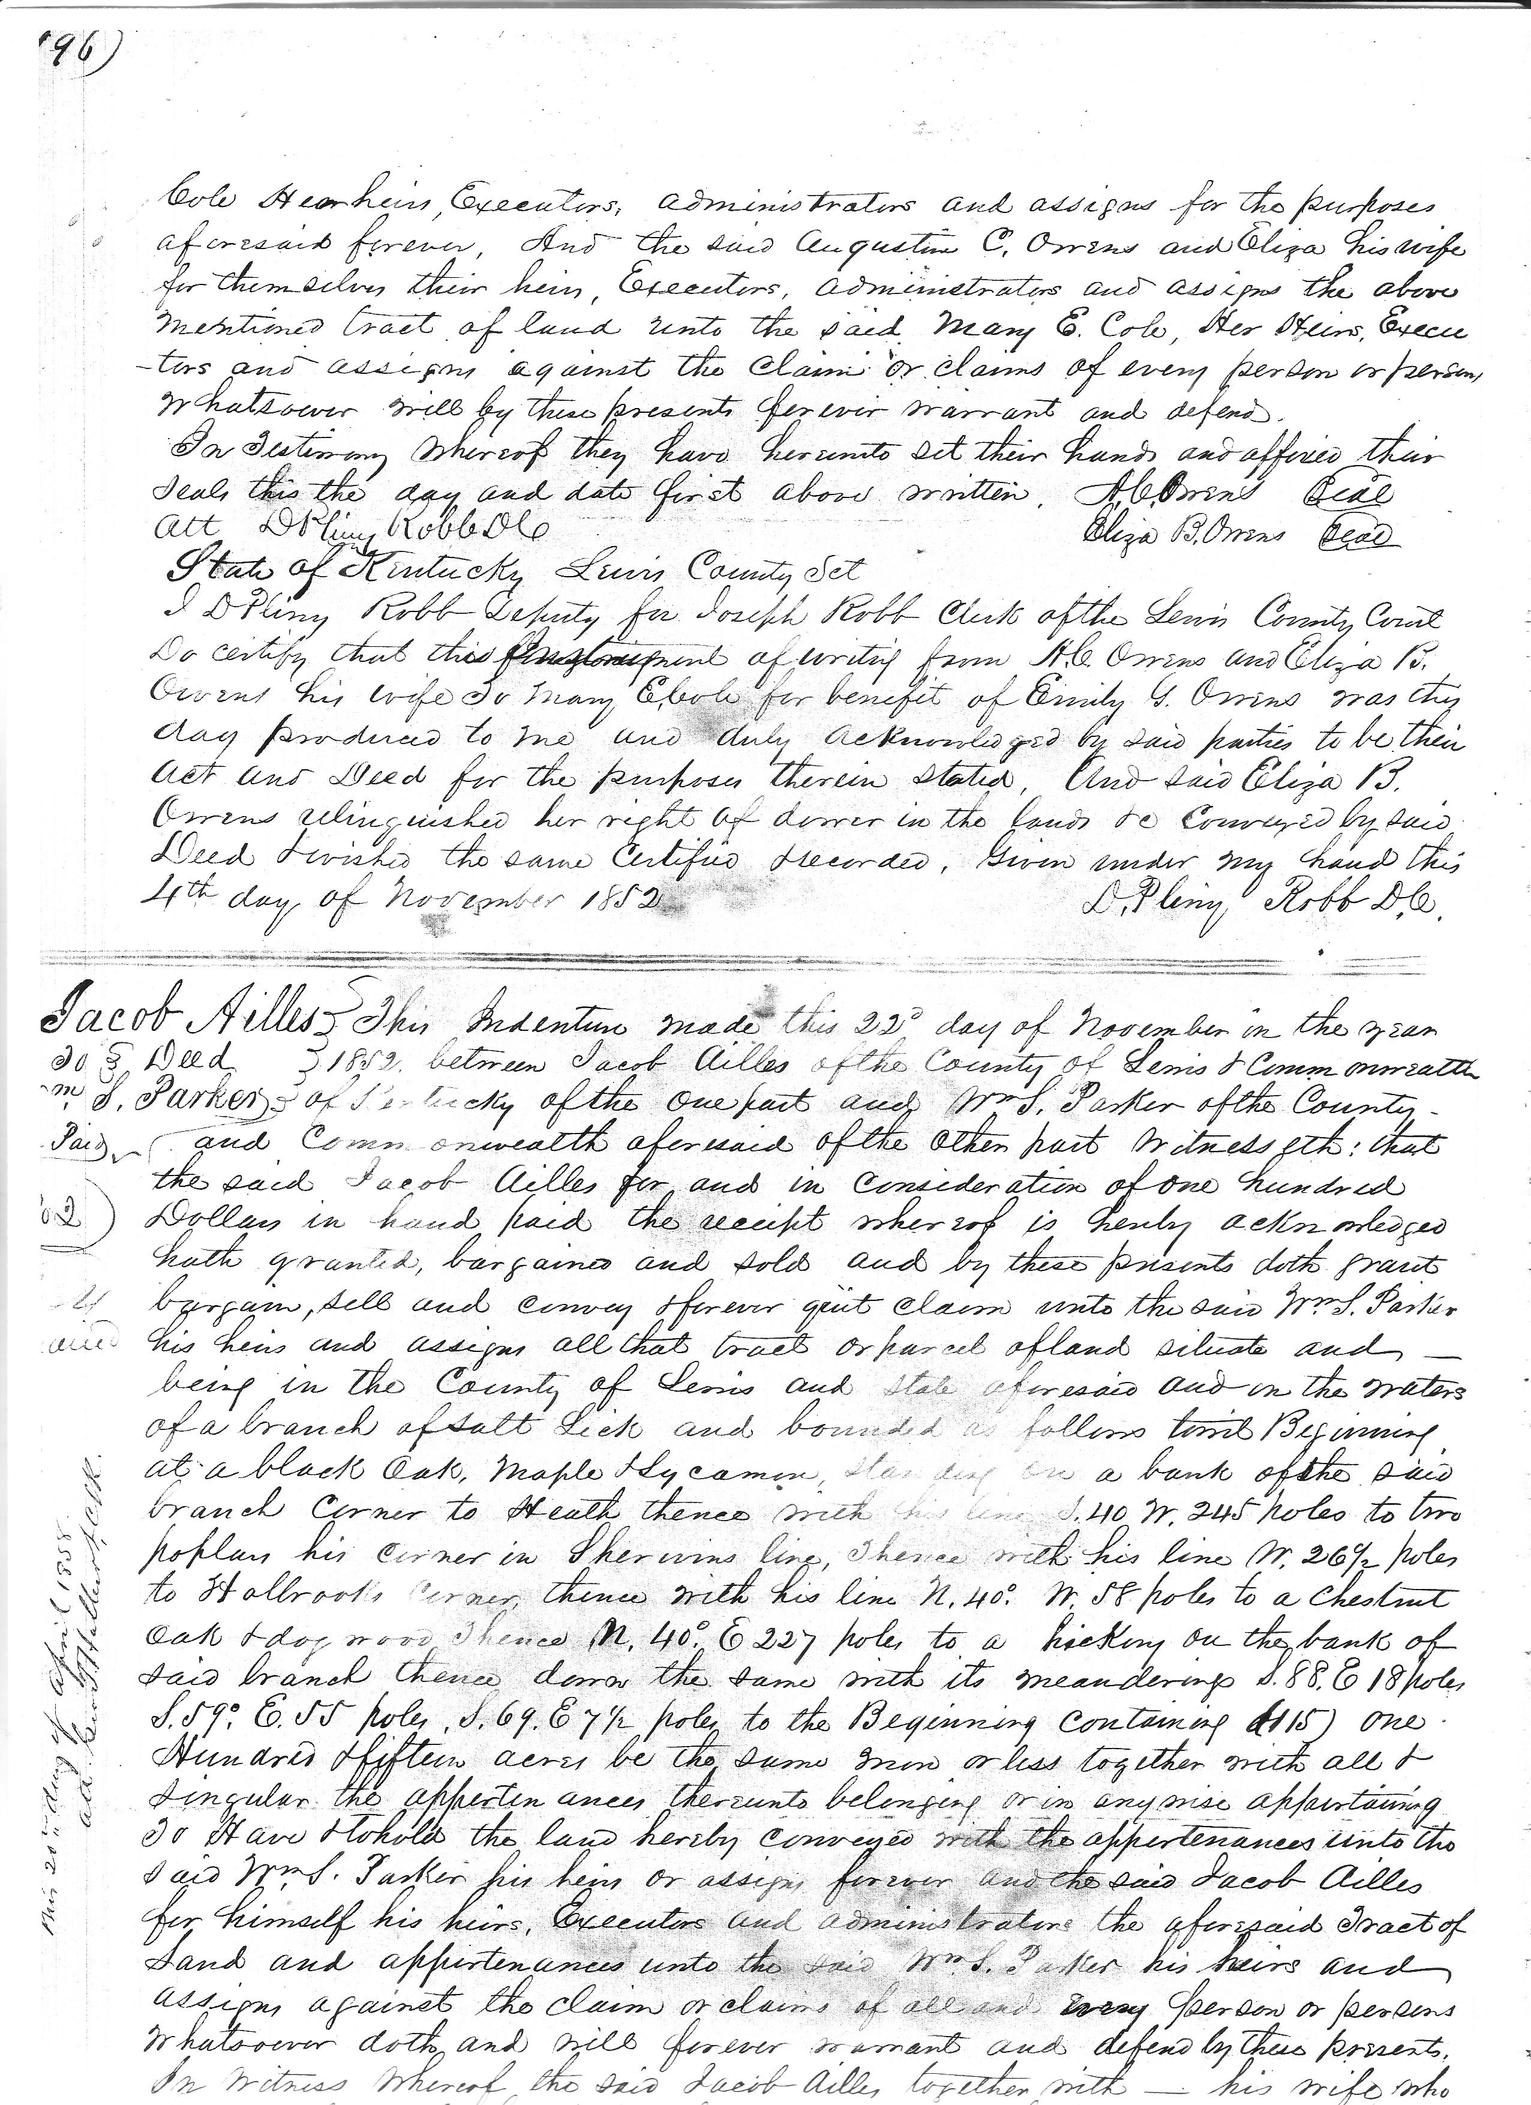 96)
Cole Her heirs, Executors, administrators and assigns for the purposes
aforesaid forever, And the said Augustin C. Owens and Eliza his wife
for themselves their heirs, Executors, administrators and assigns the above
mentioned tract of land unto the said Mary E. Cole, Her Heirs, Execu
-tors and assigns against the Claim or claims of every person or persons
whatsoever will by these presents forever warrant and defend.
In Testimony whereof they have hereunto set their hands and affixed their
seals this the day and date first above written. A.C. Owens Seal
Att D Pliny Robb DC Eliza B. Owens Seal
State of Kentucky Lewis County Sct
I D Pliny Robb Deputy for Joseph Robb Clerk of the Lewis County Court
Do certify that this Instrument of writing from A.C. Owens and Eliza B.
Owens his wife To Mary E. Cole for benefit of Emily G. Owens was this
day produced to me and duly acknowledged by said parties to be their
act and Deed for the purposes therein stated, And said Eliza B.
Owens relinquished her right of dower in the lands &c Conveyed by said
Deed & wished the same Certified & recorded. Given under my hand this
4th day of November 1852 D. Pliny Robb D.C.
Jacob Ailles This Indenture made this 22d day of November in the year
To Deed 1852. between Jacob Ailles of the County of Lewis & Commonwealth
m. S. Parker of Kentucky of the one part and Wm S. Parker of the County
Paid and Commonwealth aforesaid of the other part Witnesseth: that
the said Jacob Ailles for and in consideration of one hundred
Dollars in hand paid the receipt whereof is hereby acknowledged
hath granted, bargained and sold and by these presents doth grant
bargain, sell and convey & forever quit claim unto the said Wm S. Parker
his heirs and assigns all that tract or parcel of land situate and
being in the County of Lewis and state aforesaid and on the waters
of a branch of Salt Lick and bounded as follows towit Beginning
at a black Oak, Maple & Sycamore, standing on a bank of the said
branch Corner to Heath thence with his line S. 40 W. 245 poles to two
poplars his corner in Sherwins line, Thence with his line W. 26½ poles
to Holbrooks Corner, thence with his line N. 40° W. 58 poles to a Chestnut
Oak & dogwood Thence N. 40° E 227 poles to a hickory on the bank of
said branch thence down the same with its meanderings S. 88. E 18 poles
S. 59° E. 55 poles, S. 69. E 7½ poles to the Beginning Containing (115) one
Hundred & fifteen acres be the same more or less together with all &
singular the appertenances thereunto belonging or in anywise appertaining
To Have & to hold the land hereby conveyed with the appertenances unto the
said Wm S. Parker his heirs or assigns forever and the said Jacob Ailles
for himself his heirs, Executors and administrators the aforesaid Tract of
Land and appertenances unto the said Wm S. Parker his heirs and
assigns against the claim or claims of all and every person or persons
whatsoever doth and will forever warrant and defend by these presents.
In Witness whereof, the said Jacob Ailles together with — his wife who
this 20th day of April 1858